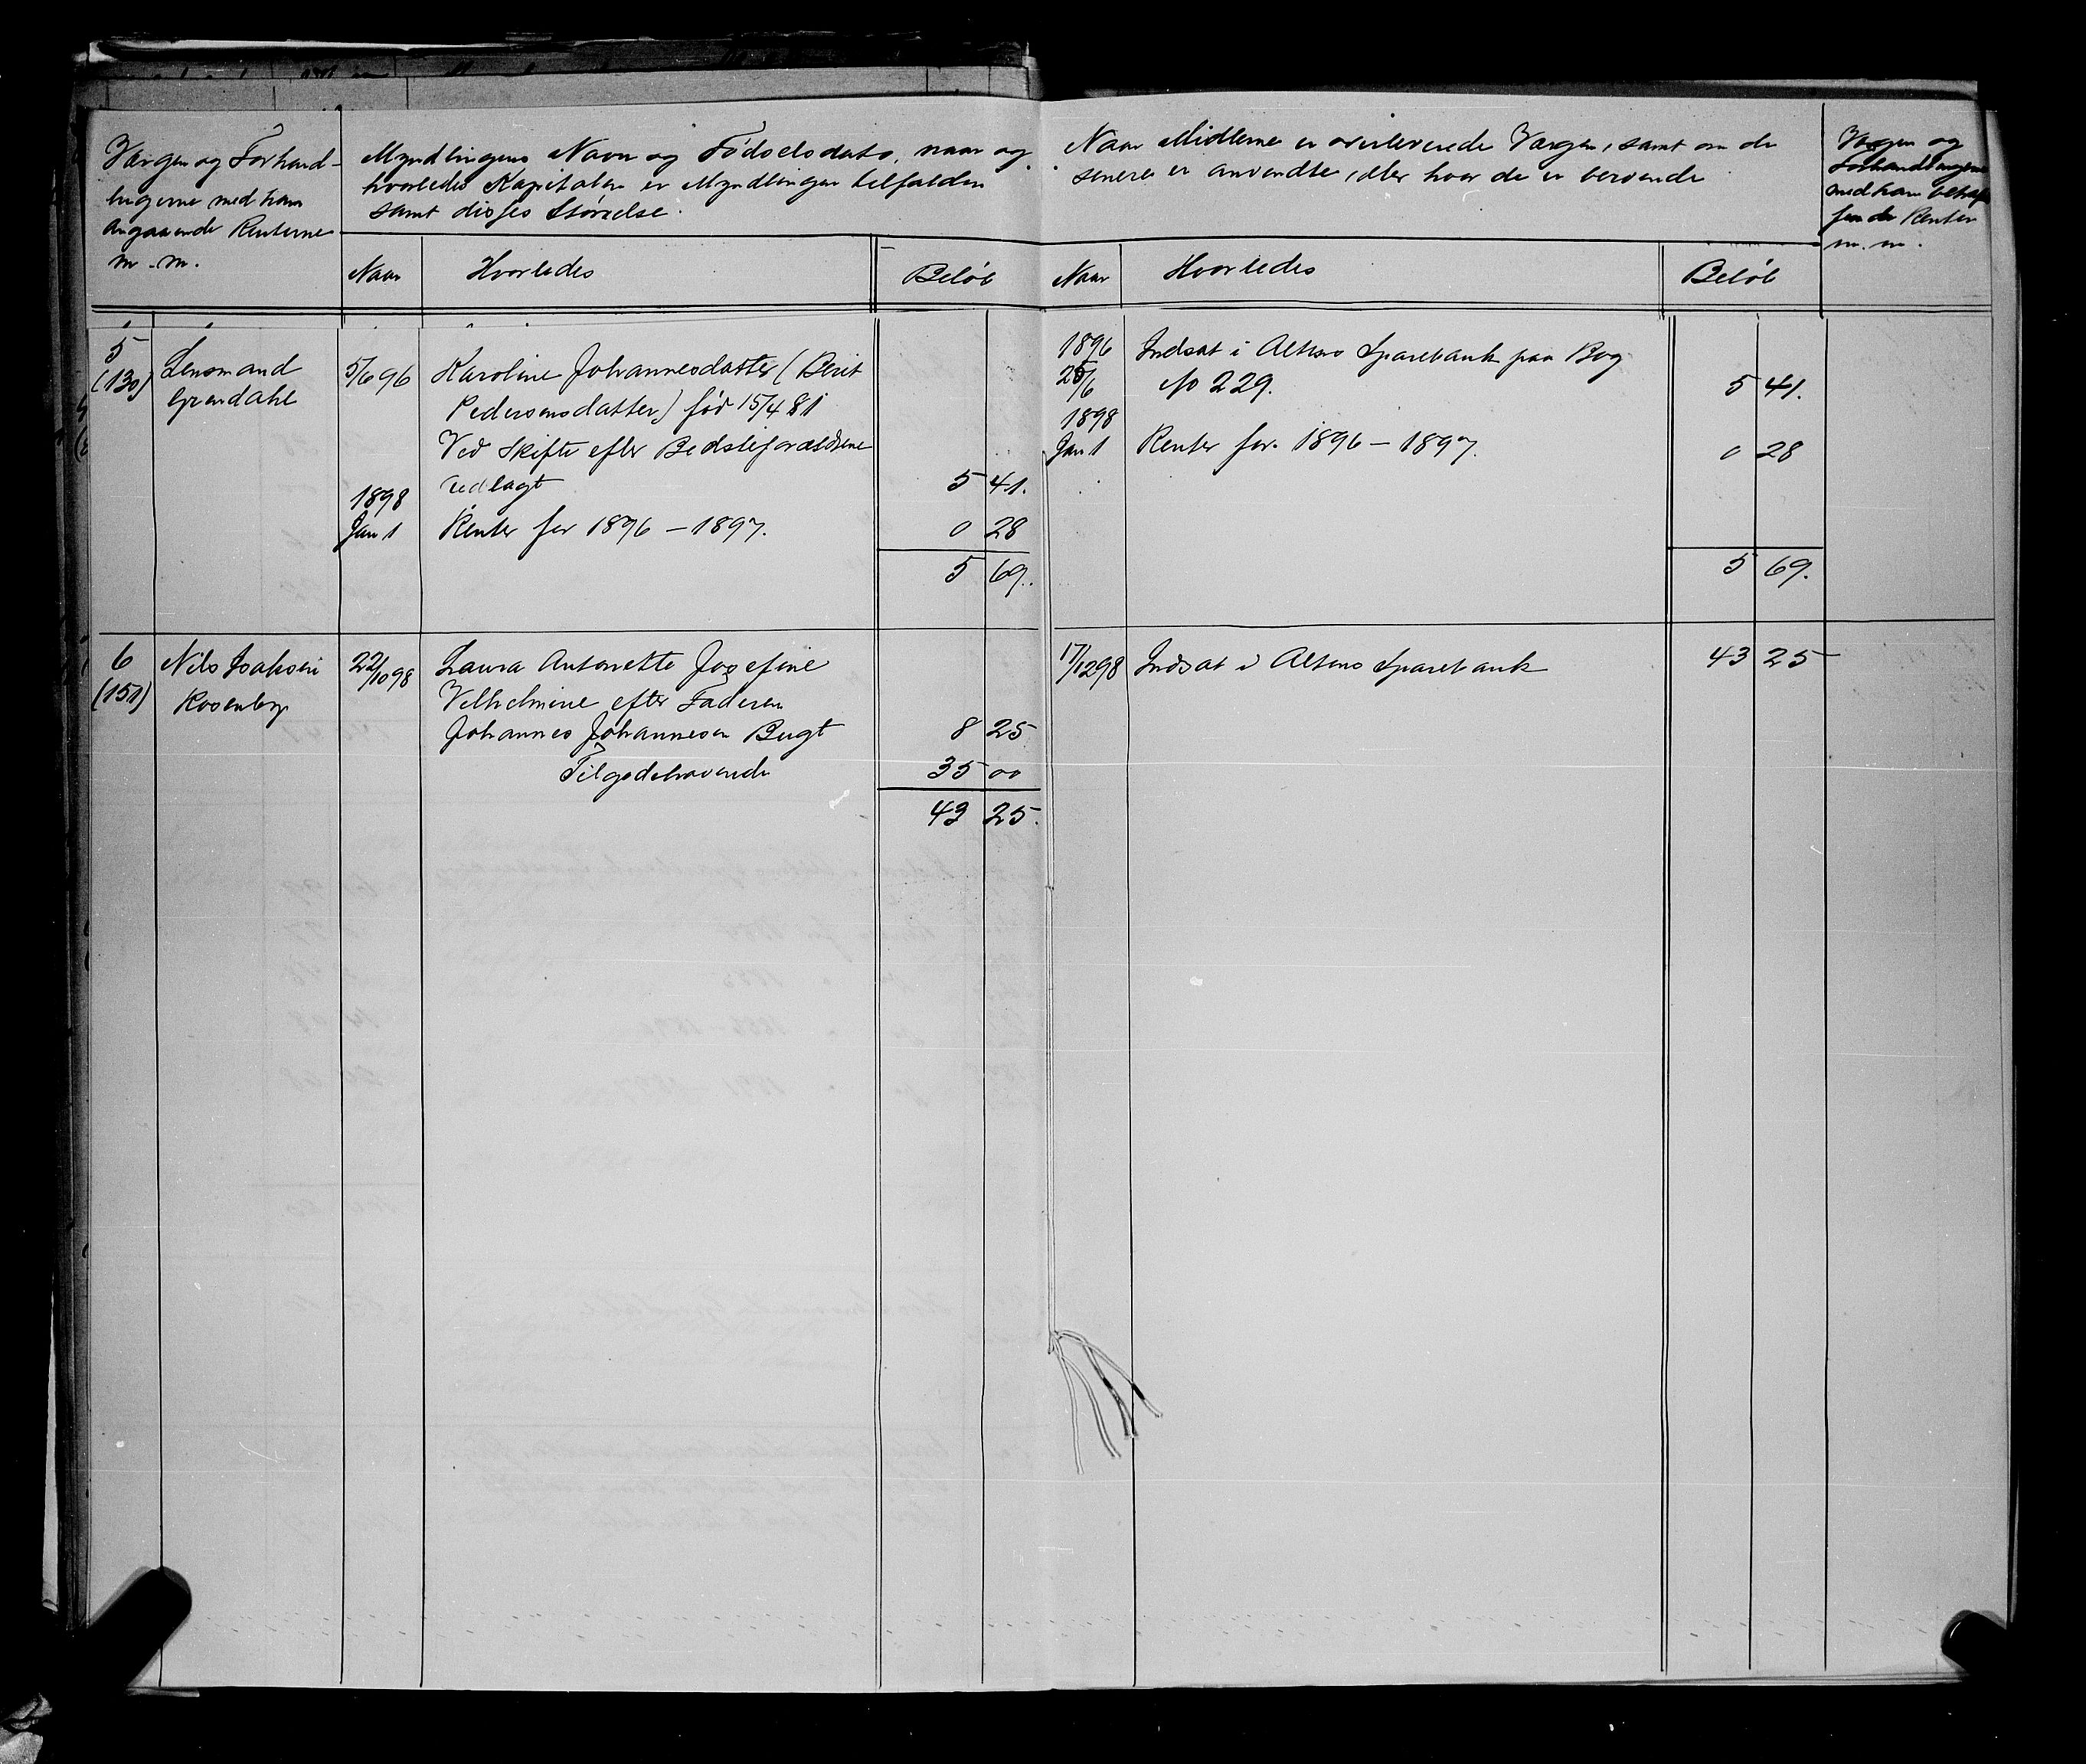 Værgen og Forhand-
lingerne med ham
angaaende Renterne
m. m.
Myndlingens Navn og Fødselsdato, naar og
hvorledes Kapitalen er Myndlingen tilfalden
samt disses Størrelse.
Naar
Hvorledes
Beløb
Naar Midlerne er overleverede Værgen, samt om de
senere er anvendte, eller hvor de er beroende
Naar
Hvorledes
Beløb
Værgen og
Forhandlingerne
med ham betræf
fende Renter
m. m.
5
(130)
Lensmand
Grendahl
5/6 96
Karoline Johannesdatter (Berit
Pedersensdatter) født 15/4 81
Ved Skifte efter Bedsteforældrene
udlagt
5 41.
1898
Jan 1
Renter for 1896 – 1897.
0 28
5 69.
1896
25/6
Indsat i Altens Sparebank paa Bog
No 229.
5 41.
1898
Jan 1
Renter for 1896 – 1897.
0 28
5 69.
6
(151)
Nils Isaksen
Rosenberg
22/10 98
Laura Antonette Josefine
Vilhelmine efter Faderen
Johannes Johannesen Bugt
8 25
Tilgodehavende
35 00
43 25.
17/12 98
Indsat i Altens Sparebank
43 25